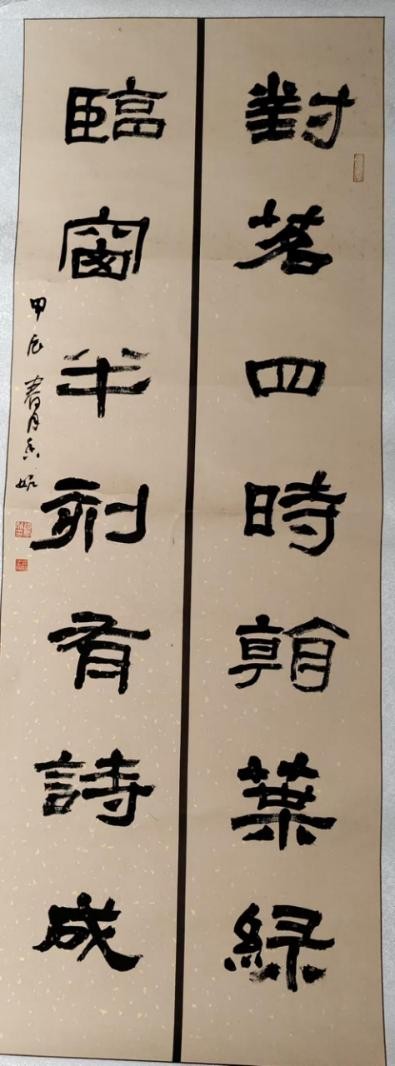 對茗四時朝葉綠
臨窗半刻有詩成
甲辰春月